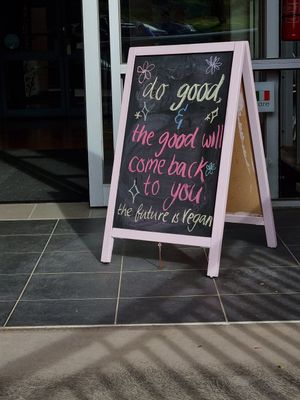 do good,
&
the good will
come back
to you
the future is vegan
VEGAN